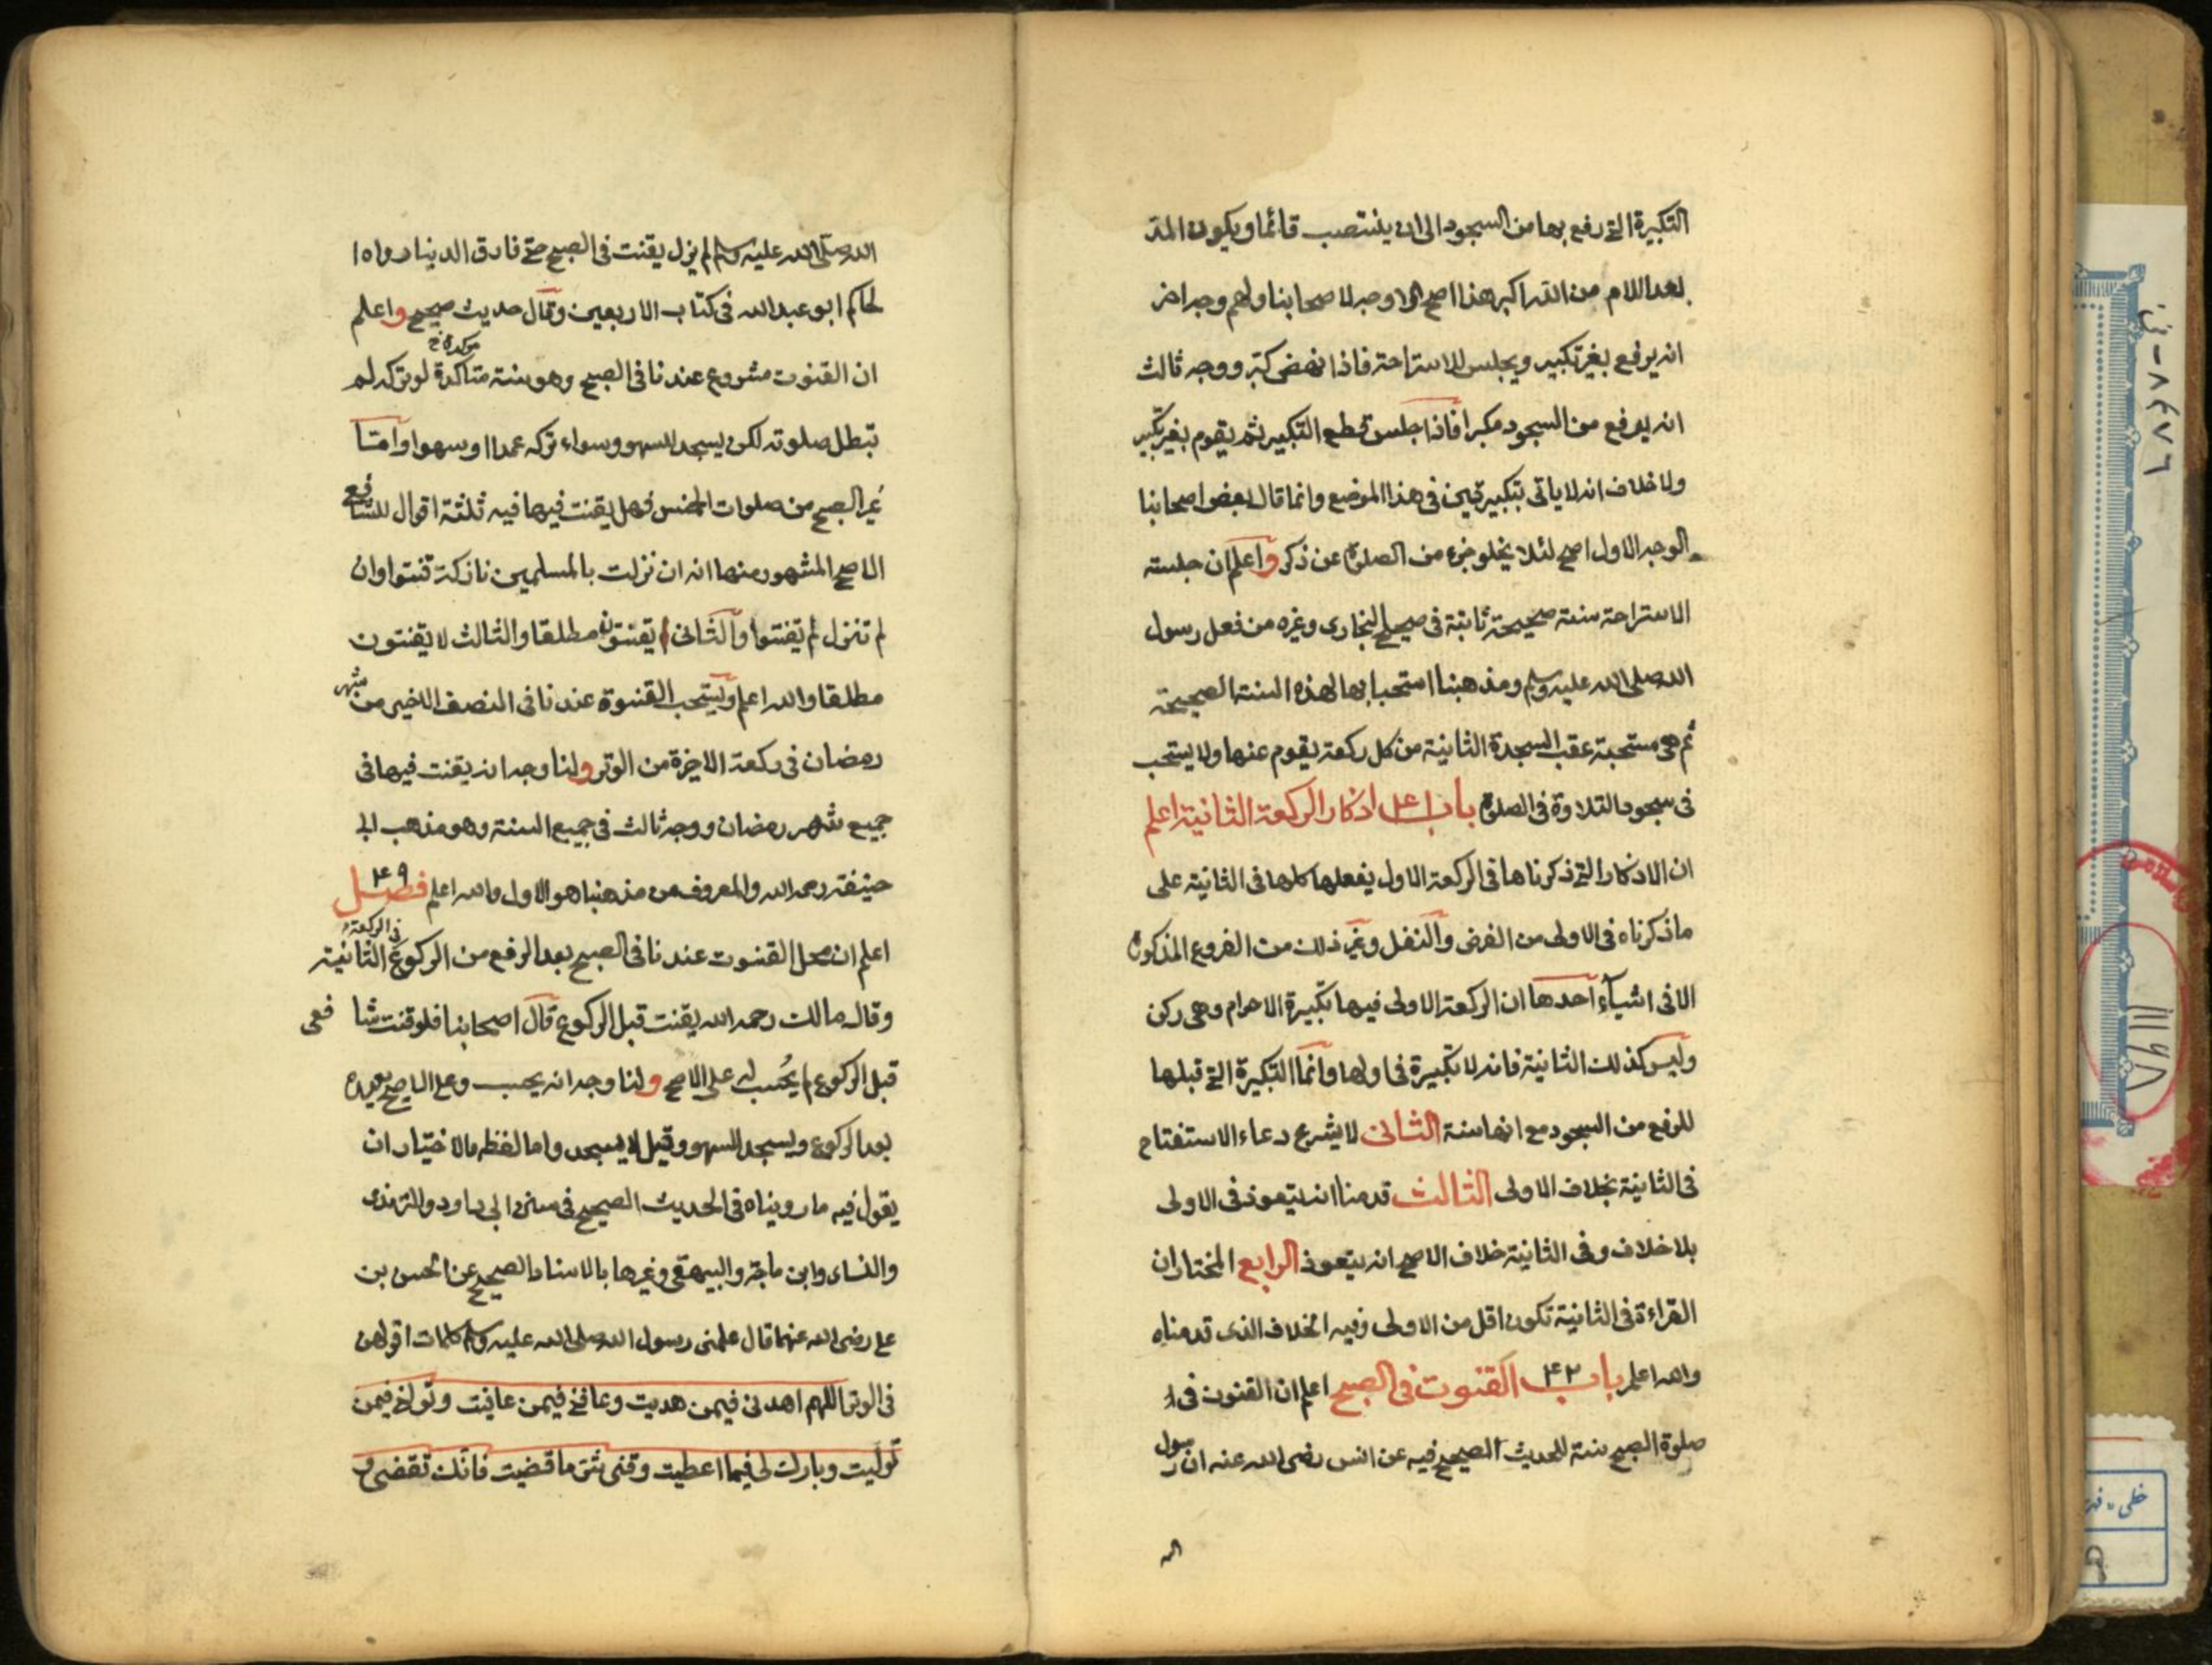 التكبيرة التى رفع بها من السجود الى ان ينتصب قائما ويكون المد
بعد اللام من الله اكبر هذا اصح الاوجه لاصحابنا ولهم وجه اخر
انه يرفع بغير تكبير ويجلس للاستراحة فاذا نهض كبر ووجه ثالث
انه يرفع من السجود مكبرا فاذا جلس قطع التكبير ثم يقوم بغير تكبير
ولا خلاف انه لا ياتى بتكبيرتين فى هذا الموضع وانما قال بعض اصحابنا
الوجه الاول اصح لئلا يخلو جزء من الصلوة عن ذكر واعلم ان جلسته
الاستراحة سنة صحيحة ثابتة فى صحيح البخارى وغيره من فعل رسول
الله صلى الله عليه وسلم ومذهبنا استحبابها لهذه السنة الصحيحة
ثم هى مستحبة عقب السجدة الثانية من كل ركعة يقوم عنها ولا يستحب
فى سجود التلاوة فى الصلوة باب ۴۱ اذكار الركعة الثانية اعلم
ان الاذكار التى ذكرناها فى الركعة الاول يفعلها كلها فى الثانية على
ماذكرناه فى الاولى من الفرض والنفل وغير ذلك من الفروع المذكورة
الا فى اشياء احدها ان الركعة الاولى فيها تكبيرة الاحرام وهى ركن
وليس كذلك الثانية فانه لا تكبيرة فى اولها وانما التكبيرة التى قبلها
للرفع من السجود مع انها سنة الثانى لا يشرع دعاء الاستفتاح
فى الثانية بخلاف الاولى الثالث قدمنا انه يتعوذ فى الاولى
بلا خلاف وفى الثانية خلاف الاصح انه يتعوذ الرابع المختار ان
القراءة فى الثانية تكون اقل من الاولى وفيه الخلاف الذى قدمناه
والله اعلم باب ۴۲ القنوت فى الصبح اعلم ان القنوت فى
صلوة الصبح سنة للحديث الصحيح فيه عن انس رضى الله عنه ان رسول
الله صلى الله عليه وسلم لم يزل يقنت فى الصبح حتى فارق الدنيا رواه ا
لحاكم ابو عبد الله فى كتاب الاربعين وقال حديث صحيح واعلم
مؤكدة خ
ان القنوت مشروع عندنا فى الصبح وهو سنة متاكدة لو تركه لم
تبطل صلوته لكن يسجد للسهو وسواء تركه عمدا او سهوا واما
غير الصبح من صلوات الخمس فهل يقنت فيها فيه ثلثة اقوال للشافعى
الاصح المشهور منها انه ان نزلت بالمسلمين نازلة قنتوا وان
لم تنزل لم يقنتوا والثانى يقنتون مطلقا والثالث لا يقنتون
مطلقا والله اعلم ويستحب القنوة عندنا فى النصف الاخير من شهر
رمضان فى ركعة الاخيرة من الوتر ولنا وجه انه يقنت فيها فى
جميع شهر رمضان ووجه ثالث فى جميع السنة وهو مذهب ابى
حنيفة رحمه الله والمعروف من مذهبنا هو الاول والله اعلم فصل ۴۹
فى الركعة
اعلم ان محل القنوت عندنا فى الصبح بعد الرفع من الركوع الثانية
وقال مالك رحمه الله يقنت قبل الركوع قال اصحابنا فلو قنت شا فعى
قبل الركوع لم يحسب له على الاصح ولنا وجه انه يحسب وعلى الاصح يعيده
بعد الركوع ويسجد للسهو وقيل لا يسجد واما لفظه فالاختيار ان
يقول فيه ما رويناه فى الحديث الصحيح فى سنن ابى داود والترمذى
والنساى وابن ماجة والبيهقى وغيرها بالاسناد الصحيح عن الحسن بن
على رضى الله عنهما قال علمنى رسول الله صلى الله عليه وسلم كلمات اقولهن
فى الوتر اللهم اهدنى فيمن هديت وعافنى فيمن عافيت وتولنى فيمن
توليت وبارك لى فيما اعطيت وقنى شر ما قضيت فانك تقضى و